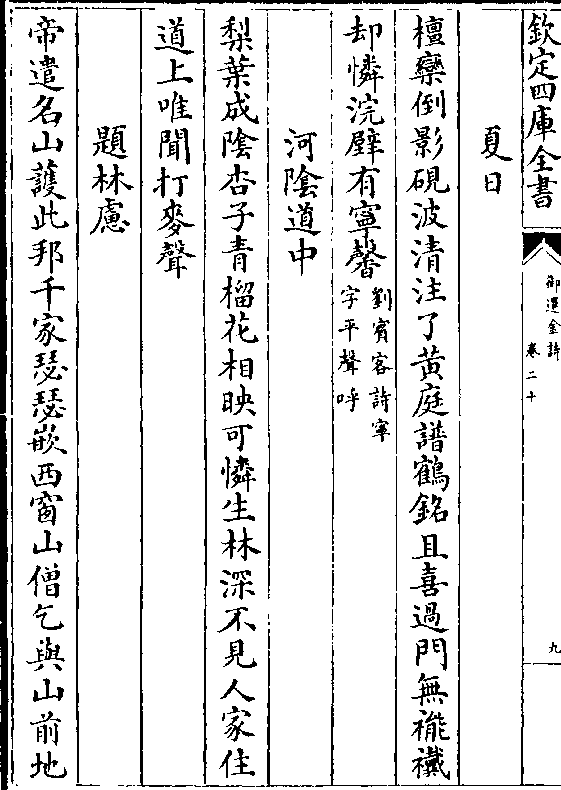 欽定四庫全書
御選金詩
卷二十
九
夏日
檀欒倒影硯波清注了黄庭譜鶴銘且喜過門無褦襶
却憐浣壁有寧馨劉賓客詩寧
字平聲呼
河隂道中
梨葉成隂杏子青榴花相映可憐生林深不見人家住
道上唯聞打麥聲
題林慮
帝遣名山䕶此邦千家瑟瑟嵌西窗山僧乞與山前地